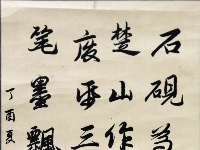 石砚为
楚山作
废平三
笔墨飘
丁酉夏